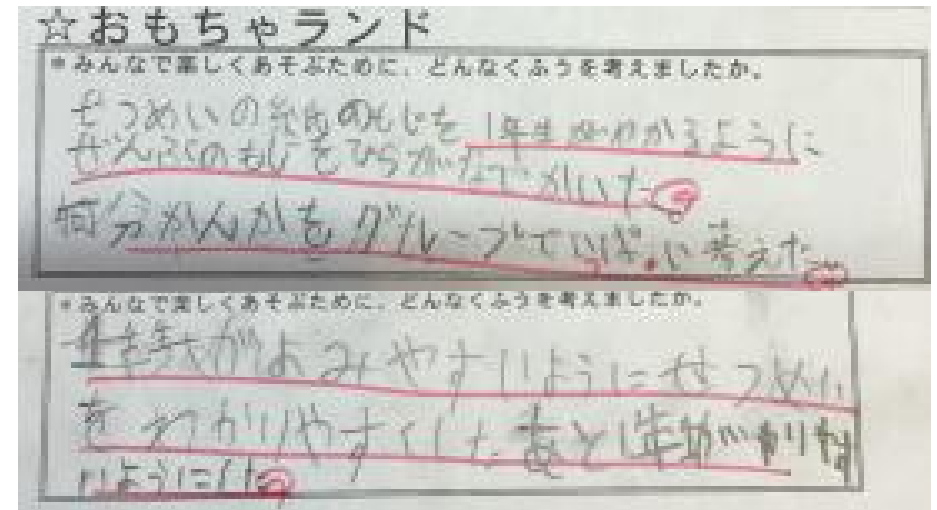 ☆おもちゃランド
*みんなで楽しくあそぶために、どんなくふうを考えましたか。
せつめいの紙のもじを1年生がわかるように
ぜんぶのもじをひらがなでかいた
何分かんかをグループでいっぱい考えた
*みんなで楽しくあそぶために、どんなくふうを考えましたか。
1年生がよみやすいようにせつめい
をわかりやすくした あと1年生が
いようにした